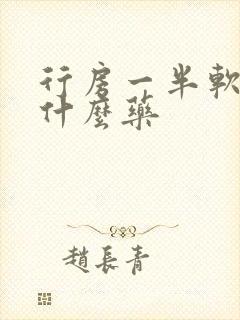 行房一半軟
什麼藥
趙長青